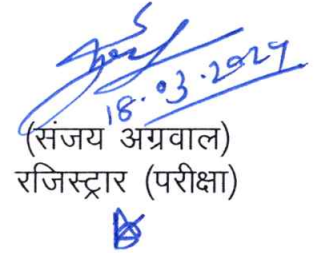 18.03.2024
(संजय अग्रवाल)
रजिस्ट्रार (परीक्षा)